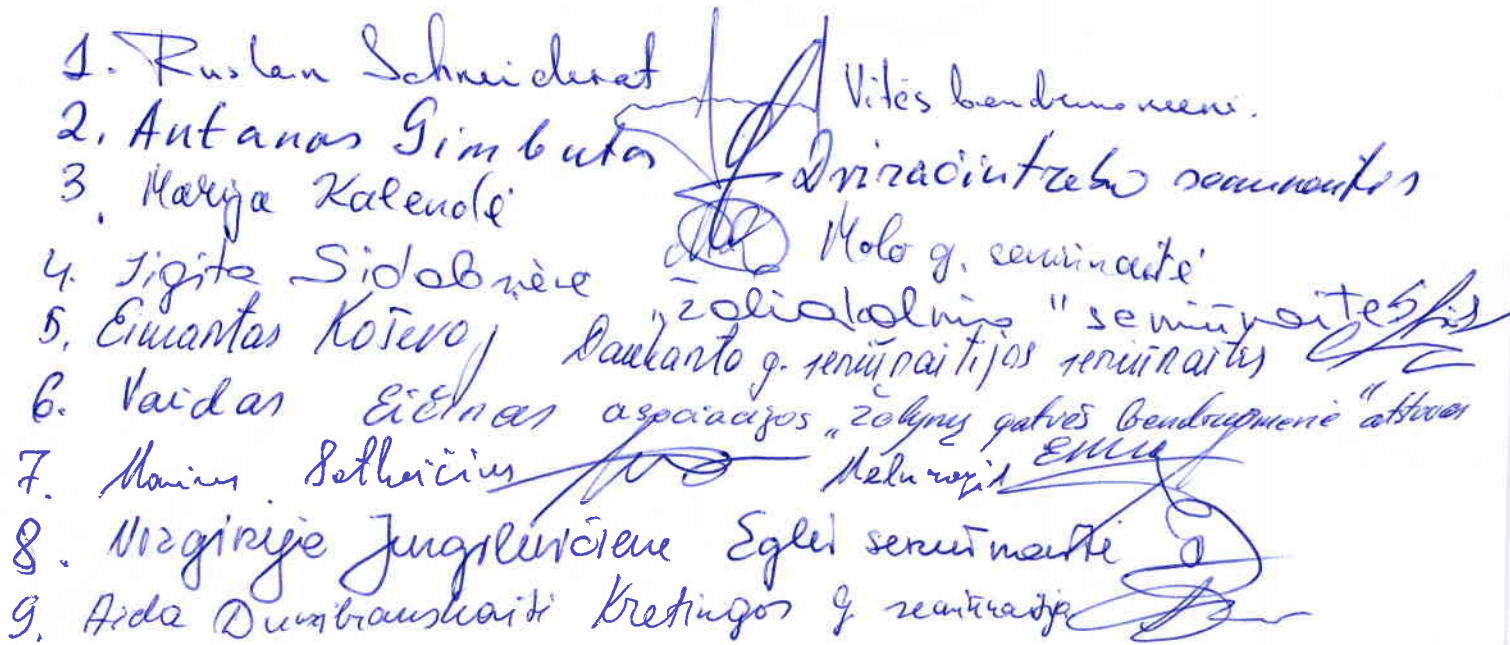 1. Ruslan Schneiderat Vitės bendruomenė.
2. Antanas Gimbutas Dviračių treko seniūnaitis
3. Marija Kalendė Molo g. seniūnaitė
4. Sigita Sidabrienė "Žaliakalnio" seniūnaitė
5. Eimantas Koševoj Daukanto g. seniūnaitijos seniūnaitis
6. Vaidas Eičinas asociacijos „Žolynų gatvės bendruomenė" atstovas
7. Marius
8. Virginija Jurgilevičienė Eglės seniūnaitė
9. Aida Dumbrauskaitė Kretingos g. seniūnaitija